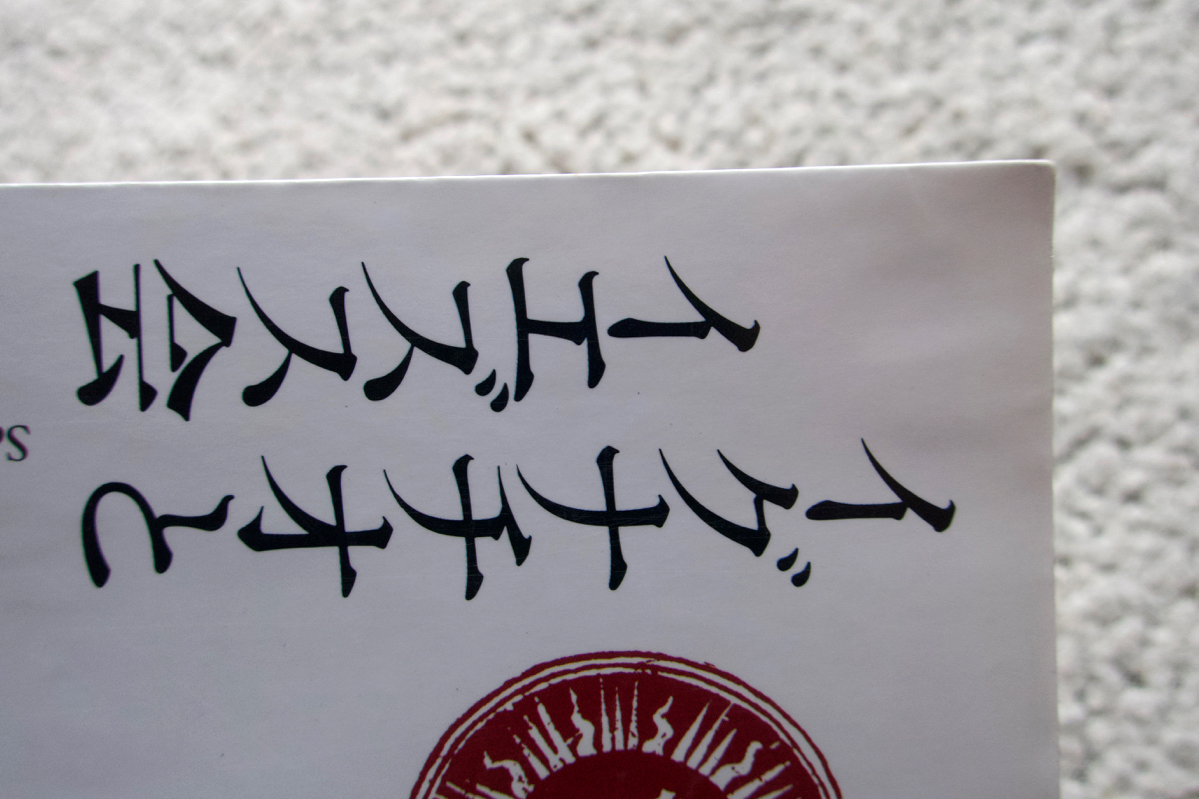 イグナチオと
イエズス会